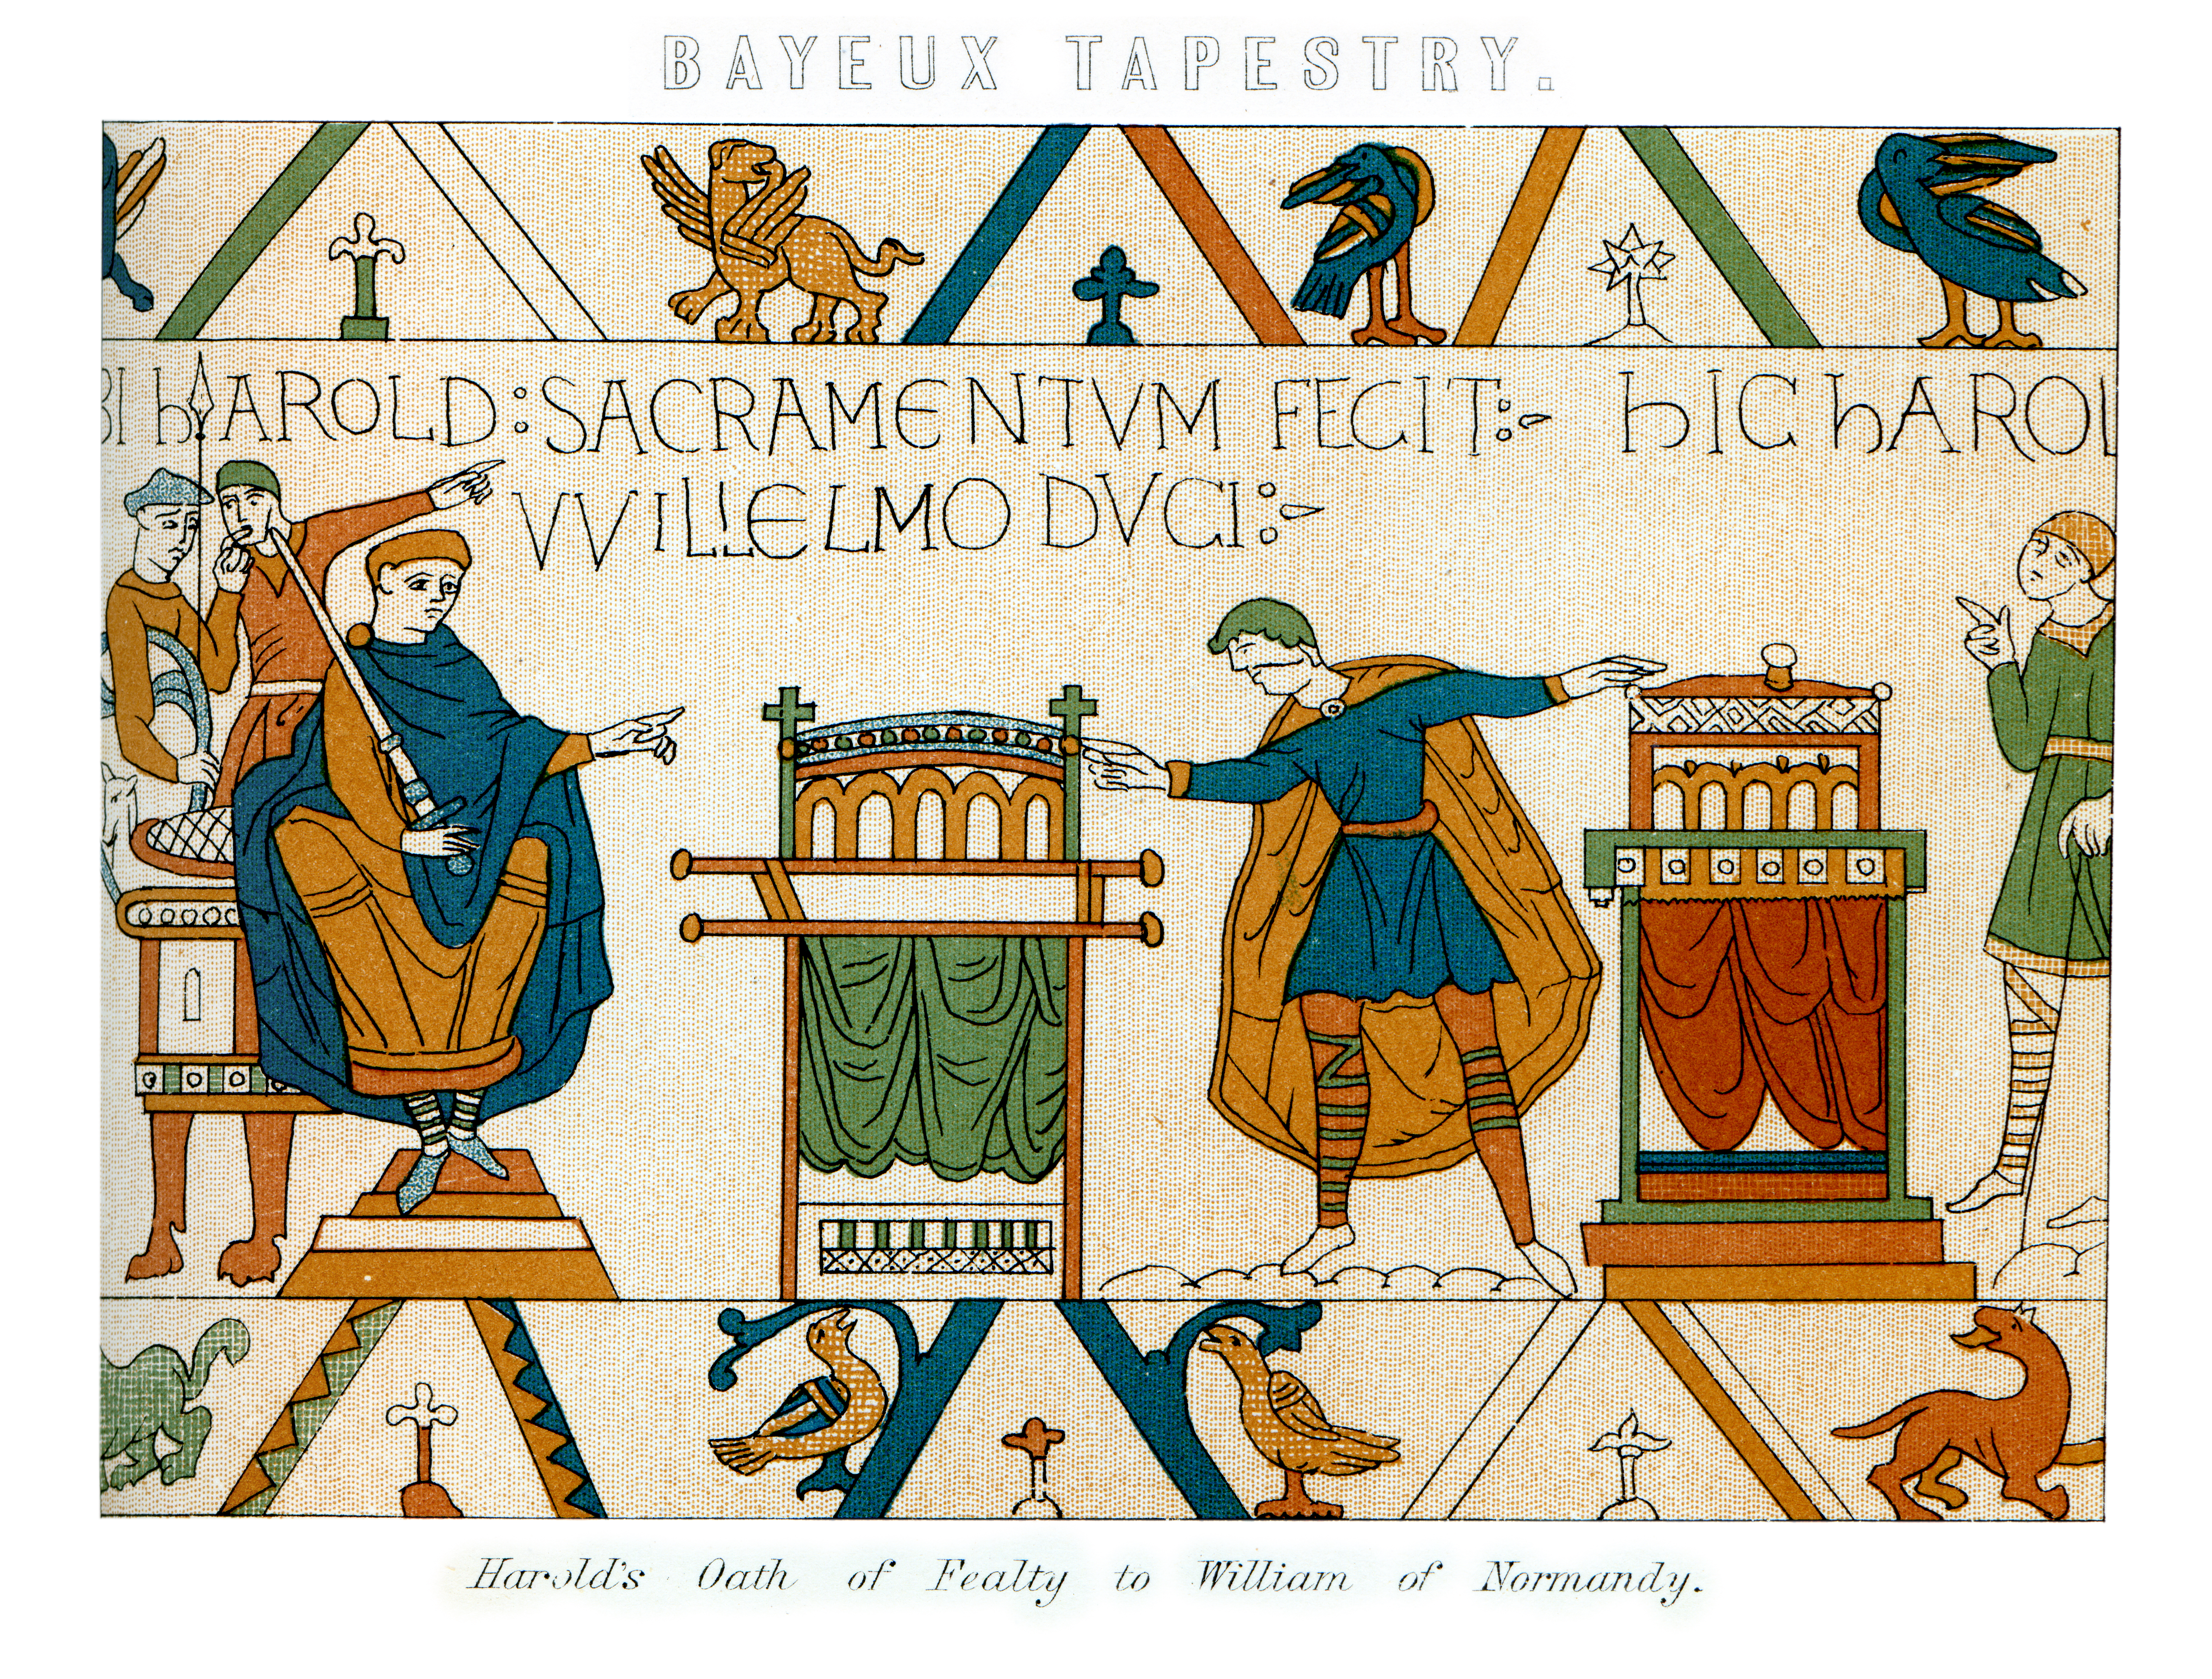 BAYEUX TAPESTRY.
BI hAROLD : SACRAMENTVM FECIT :- hIC hAROL
VVILLELMO DVCI :-
Harold's Oath of Fealty to William of Normandy.